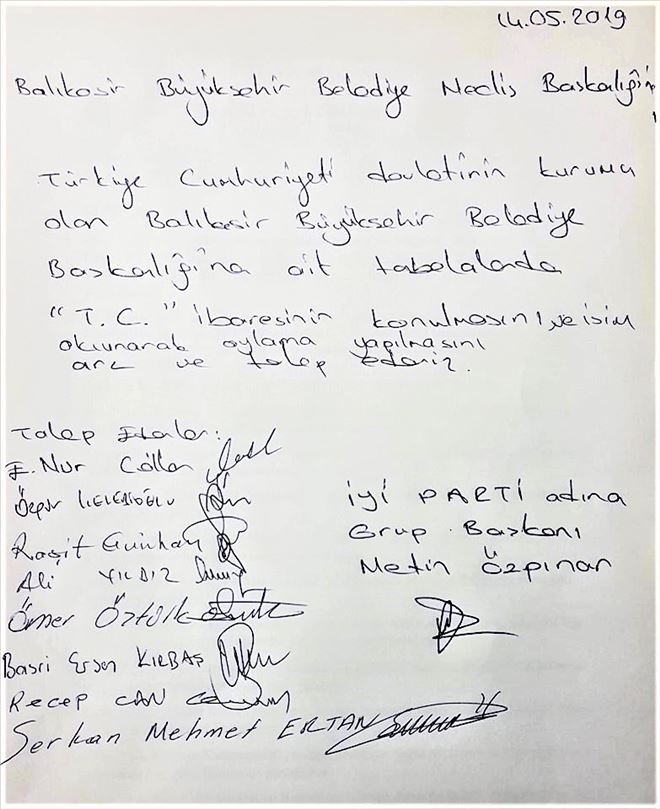 14.05.2019
Balıkesir Büyükşehir Belediye Meclis Başkanlığı'n
Türkiye Cumhuriyeti devletinin kurumu
olan Balıkesir Büyükşehir Belediye
Başkanlığı'na ait tabelalarda
"T.C." ibaresinin konulmasını, ve isim
okunarak oylama yapılmasını
arz ve talep ederiz.
Talep Edenler:
E. Nur
Özgür
Raşit Günhan
Ali YILDIZ
Ömer Öztürk
Basri Ersen KIRBAŞ
Recep CAN
Serkan Mehmet ERTAN
iyi PARTİ adına
Grup Başkanı
Metin Özpınar